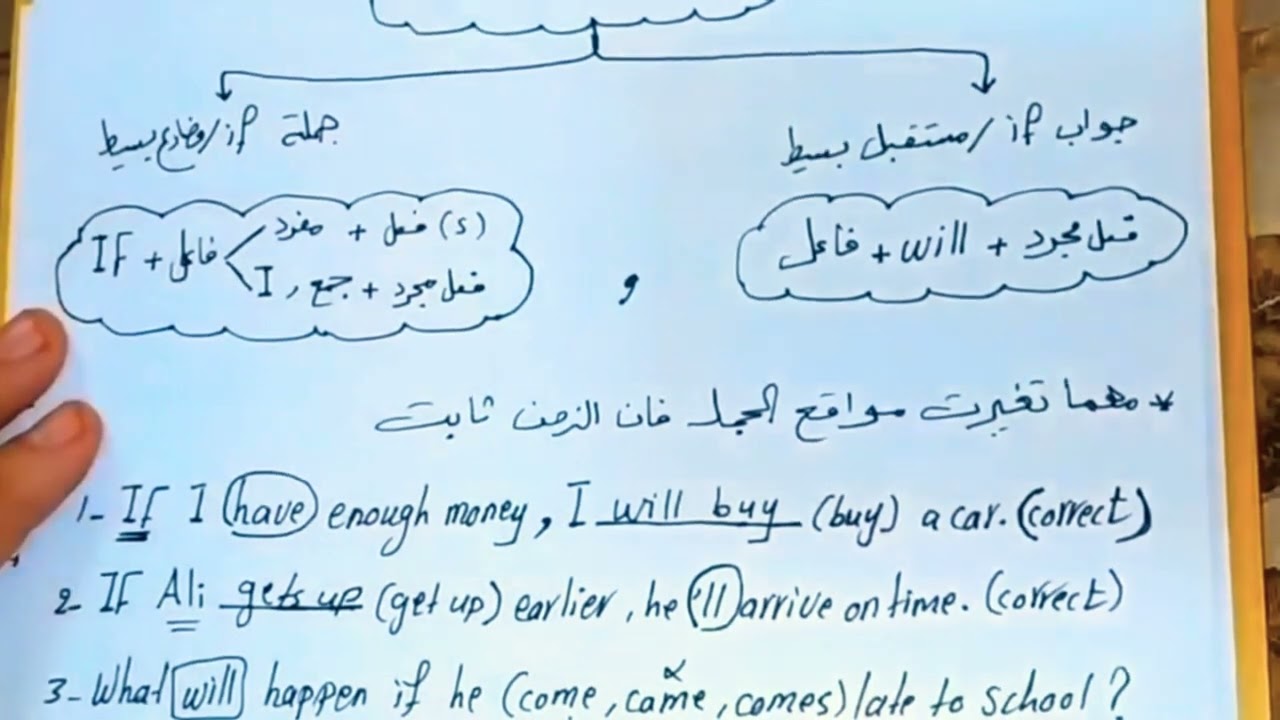 جملة if / مضارع بسيط
جواب if / مستقبل بسيط
IF + فاعل < مفرد + فعل (s)
I , جمع + فعل مجرد
,
فاعل + will + فعل مجرد
* مهما تغيرت مواقع الجمل فان الزمن ثابت
1- If I have enough money, I will buy (buy) a car. (correct)
2- IF Ali gets up (get up) earlier, he 'll arrive on time. (correct)
3- What will happen if he (come, came, comes) late to school?